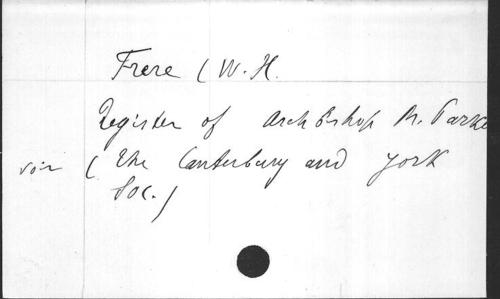 Frere (W. H.
Register of Archbishop M. Parke
voir (The Canterbury and York
Soc.)